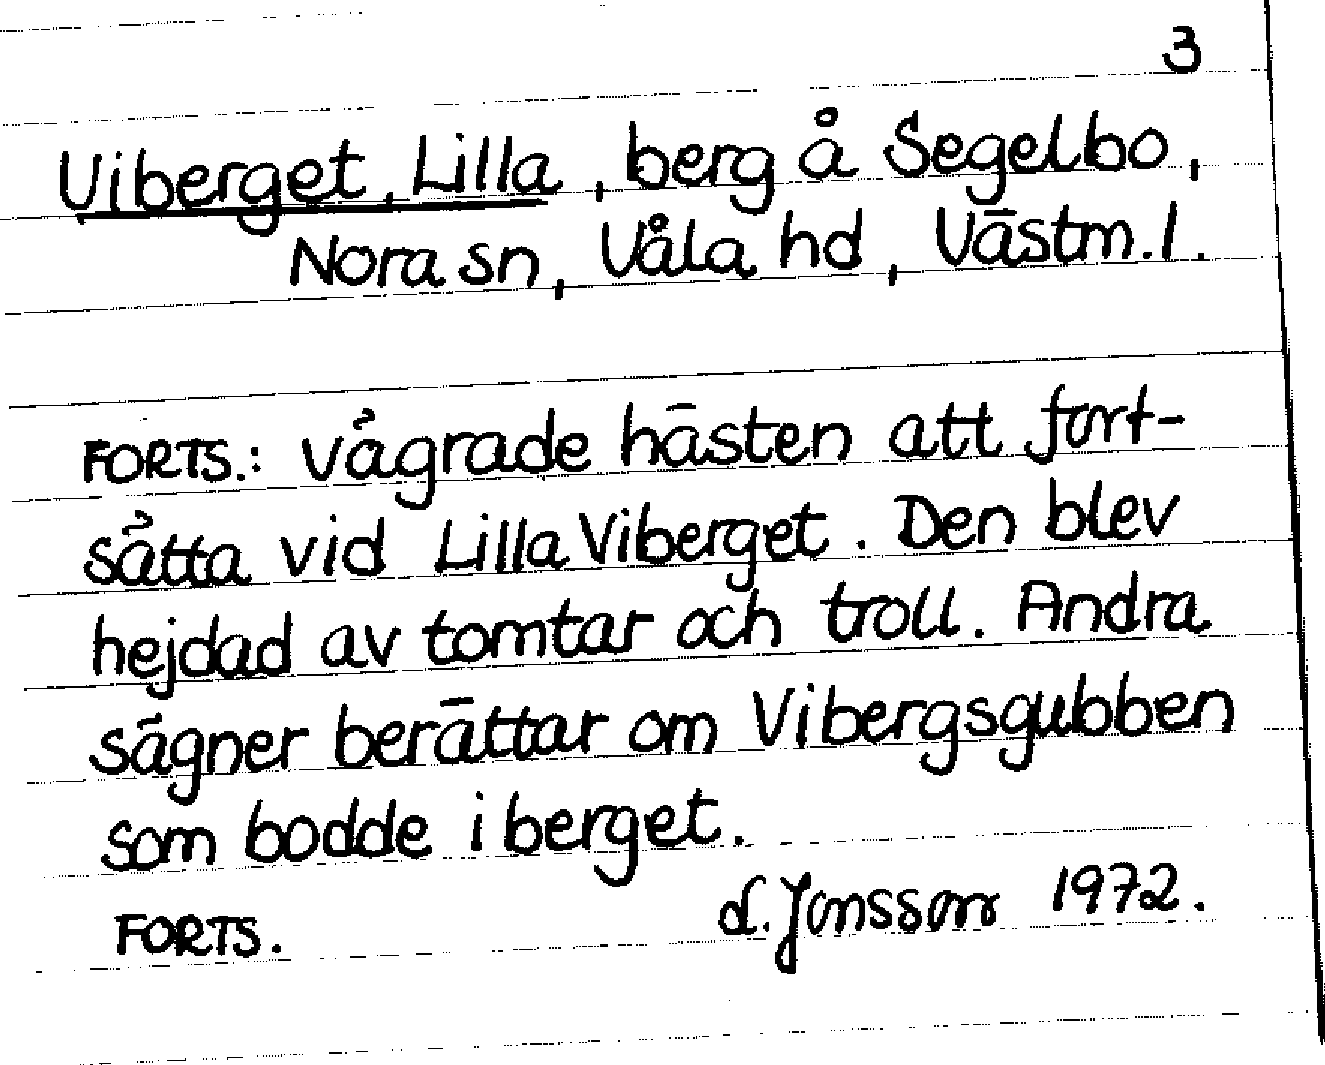 3
Viberget, Lilla, berg å Segelbo,
Nora sn, Våla hd, Västm. l.
FORTS.: vägrade hästen att fort-
sätta vid Lilla Viberget. Den blev
hejdad av tomtar och troll. Andra
sägner berättar om Vibergsgubben
som bodde i berget.
FORTS. d. Jonsson 1972.